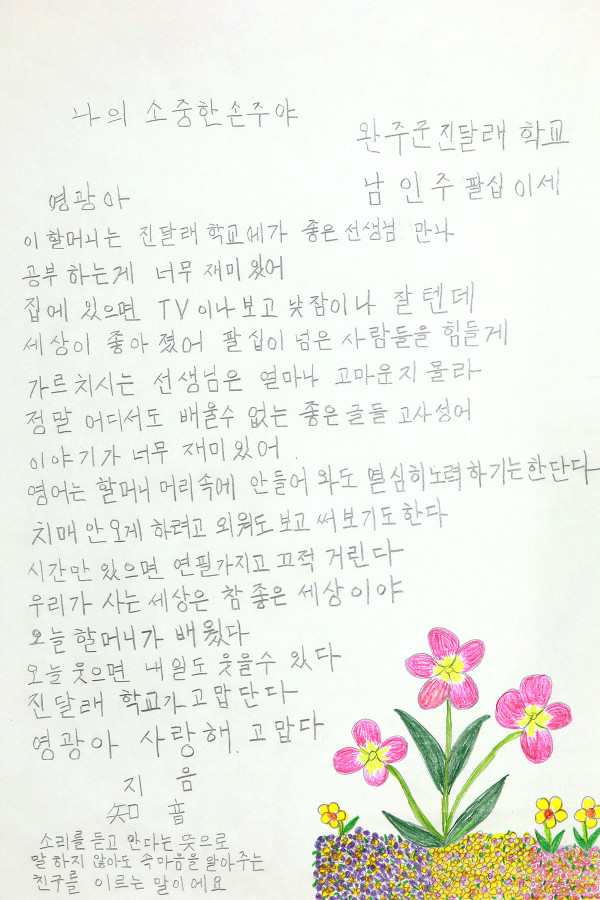 나의 소중한손주야
완주군진달래 학교
남인주 팔십이세
영광아
이할머니는 진달래학교에가 좋은선생님 만나
공부하는게 너무 재미있어
집에 있으면 TV이나보고 낮잠이나 잘텐데
세상이 좋아졌어 팔십이넘은사람들을 힘들게
가르치시는 선생님은 얼마나 고마운지몰라
정말 어디서도 배울수 없는 좋은글들 고사성어
이야기가 너무 재미있어.
영어는 할머니 머리속에 안들어와도 열심히노력하기는한단다
치매안오게 하려고 외워도보고써보기도한다
시간만 있으면 연필가지고 끄적거린다
우리가 사는세상은 참좋은 세상이야
오늘할머니가 배웠다
오늘웃으면 내일도 웃을수 있다
진달래 학교가고맙단다
영광아 사랑해. 고맙다
지음
知音
소리를듣고 안다는 뜻으로
말하지 않아도 속마음을알아주는
친구를 이르는 말이에요